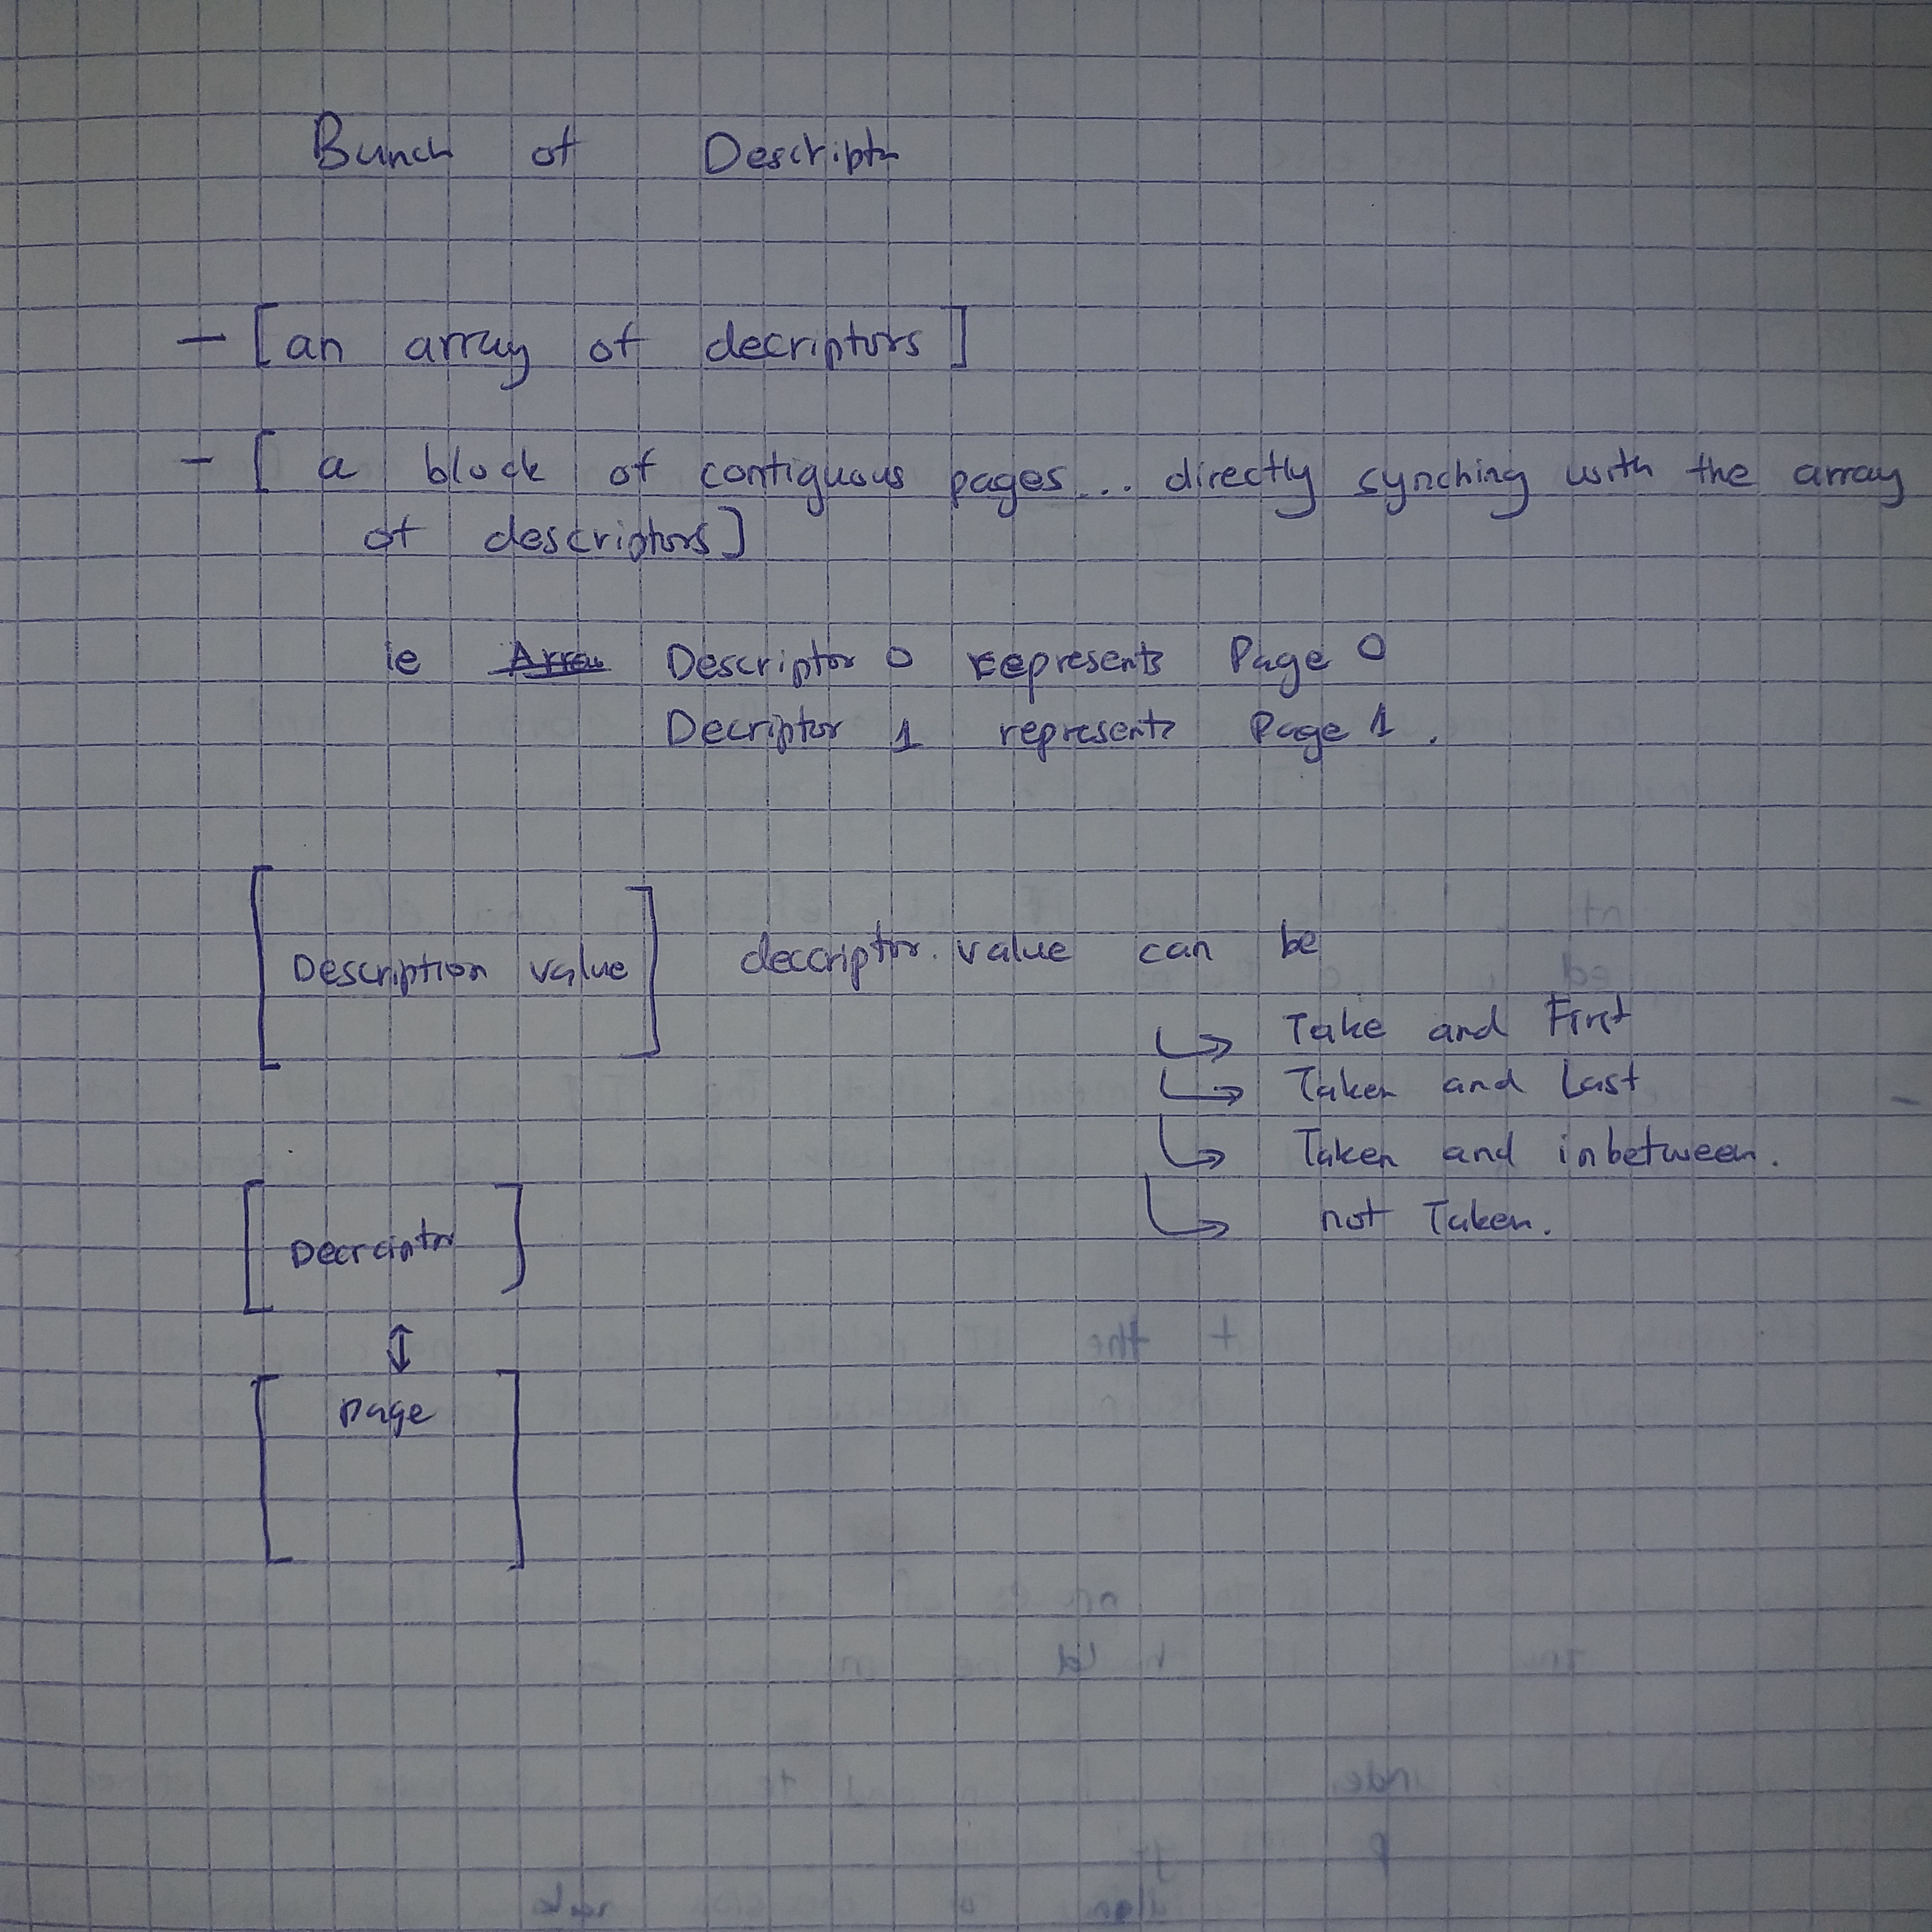 Bunch of Descriptr
- [an array of decriptors]
- [ a block of contiguous pages... directly synching with the array
of descriptors]
ie Descriptor 0 represents Page 0
Decriptor 1 represents Page 1.
[Description value] descriptor. value can be
↳ Take and First
↳ Taken and Last
↳ Taken and inbetween.
↳ not Taken.
[Decriptr]
↕
[page]